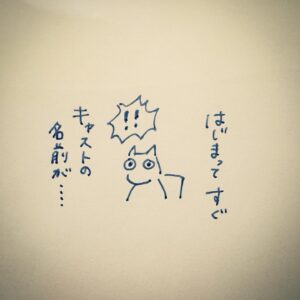 はじまって すぐ
!!
キャストの
名前が……